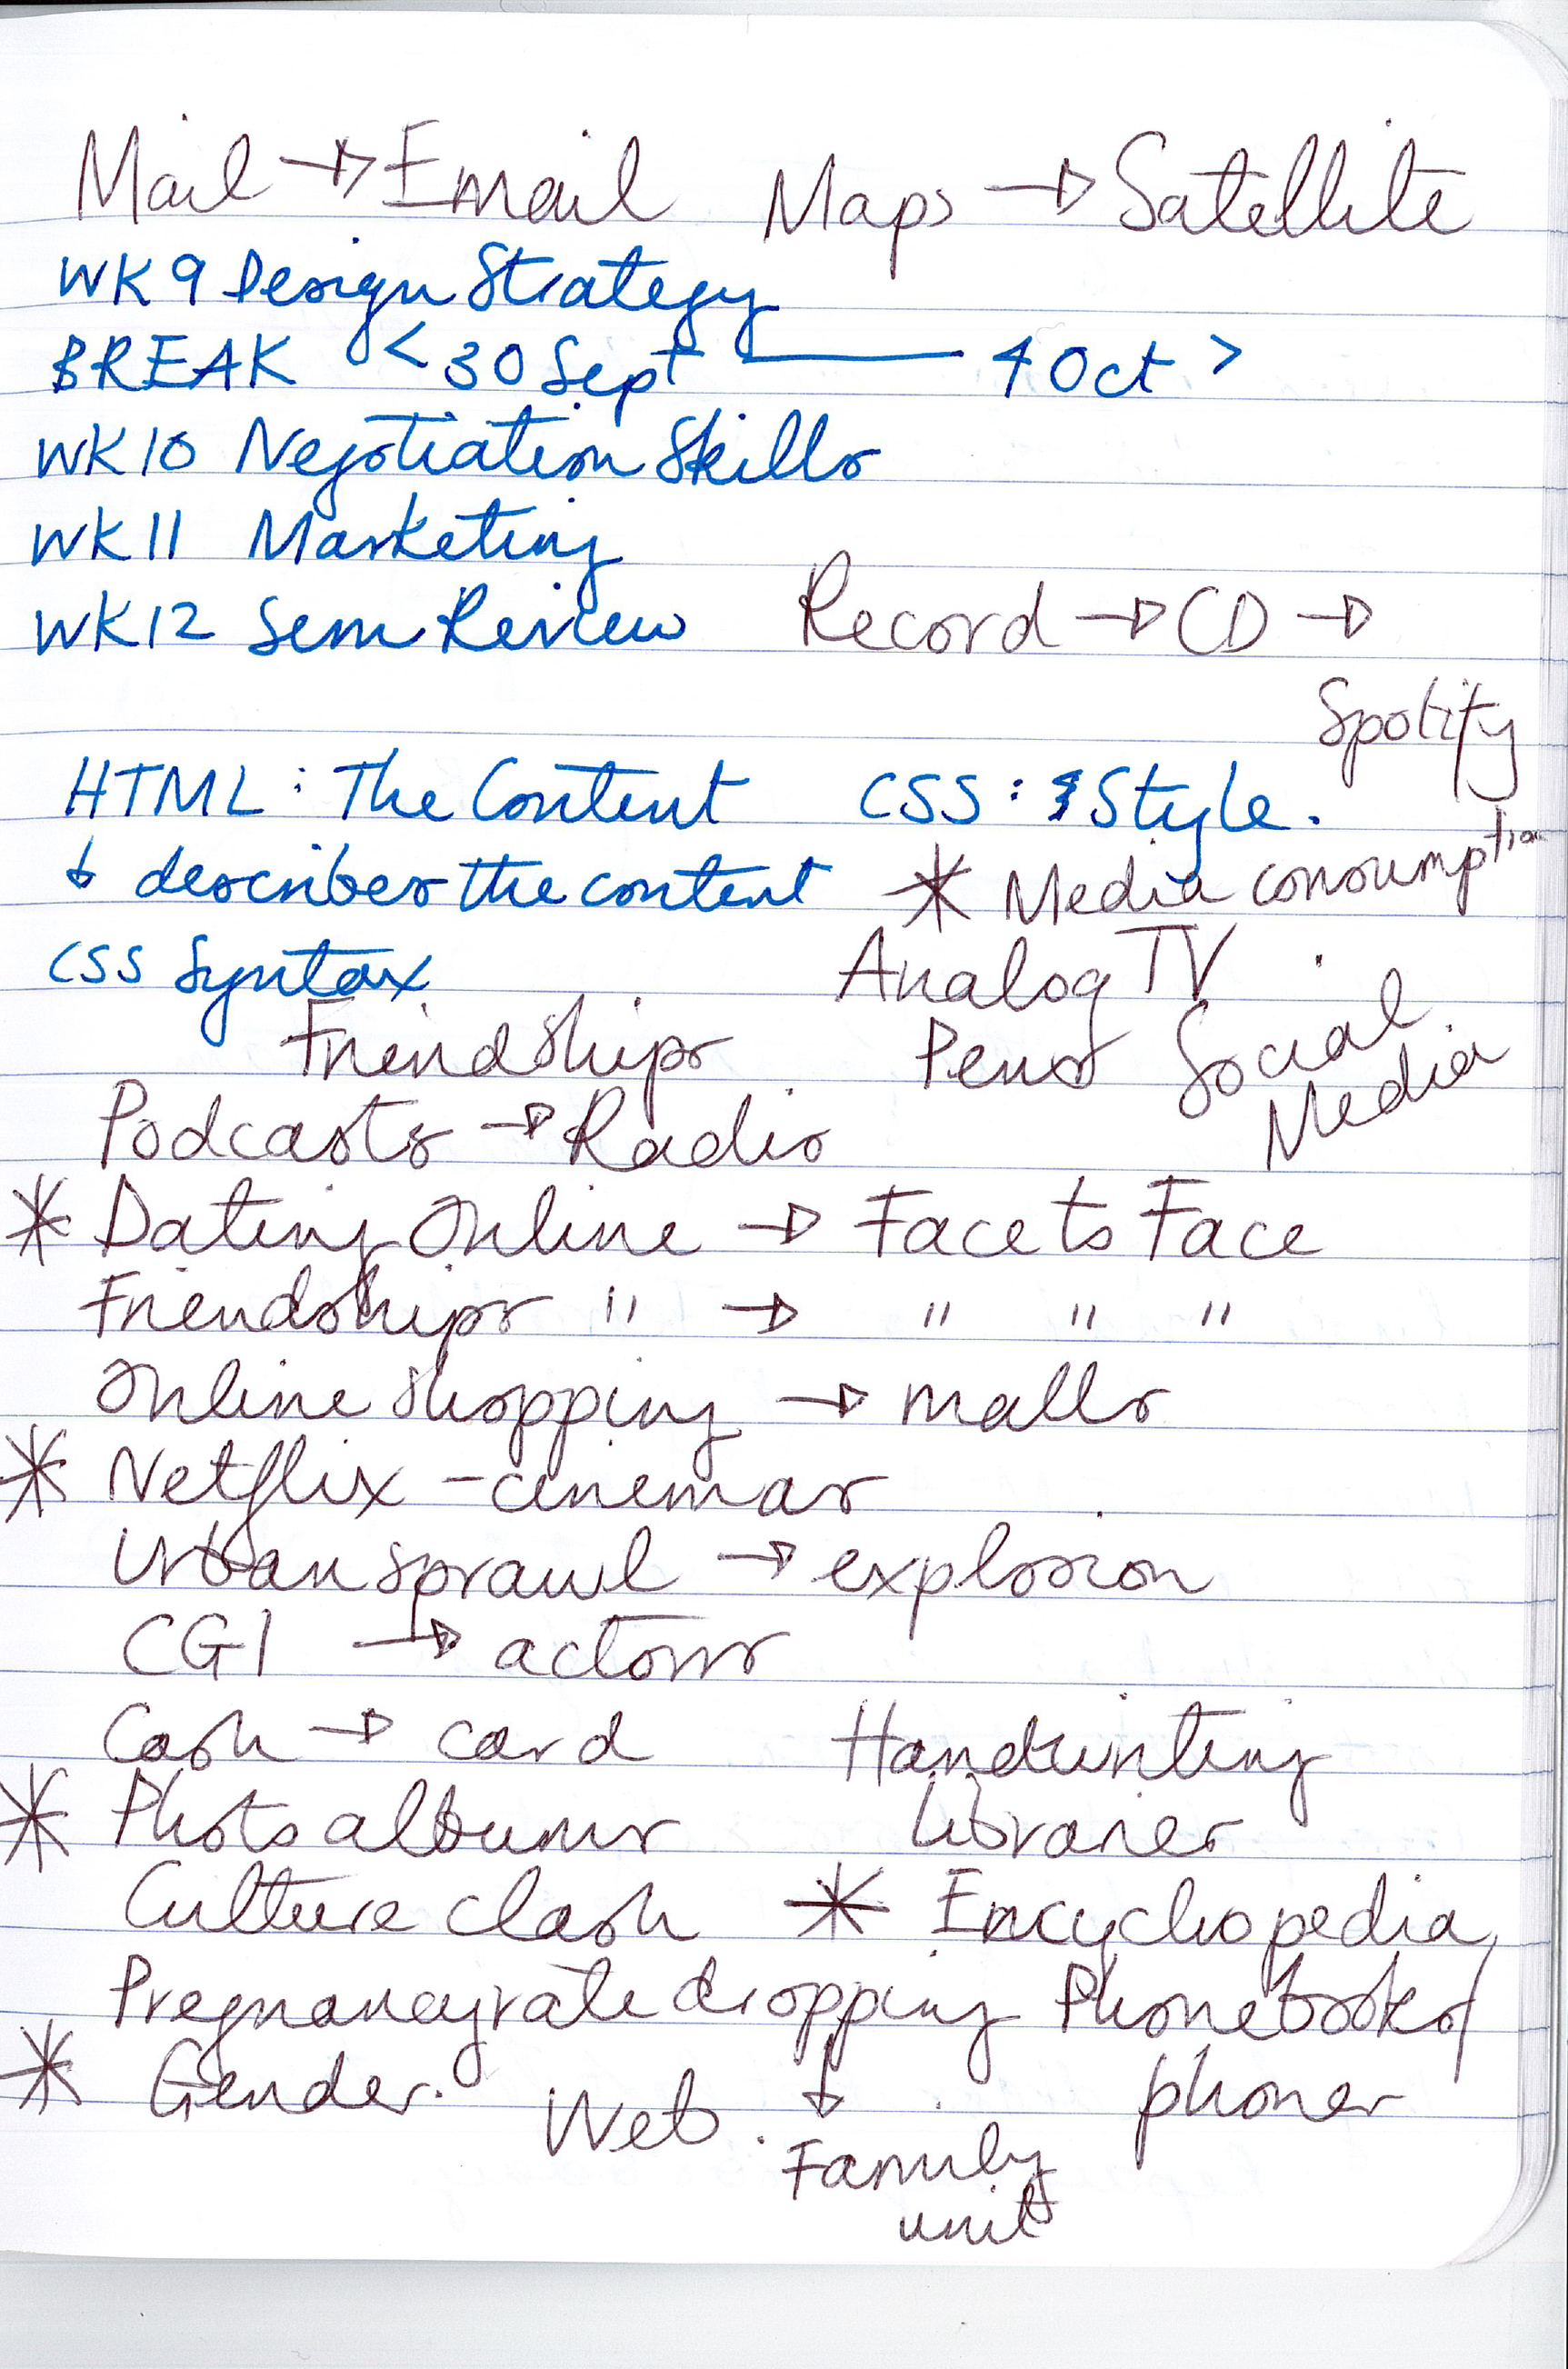 Mail → Email Maps → Satellite
WK 9 Design Strategy
BREAK < 30 Sept — 4 Oct >
WK 10 Negotiation Skills
WK 11 Marketing
WK 12 Sem Review Record → CD →
Spotify
HTML : The Content CSS : Style.
↓ describes the content * Media consumption
CSS Syntax Analog TV
Friendships Pens Social
Media
Podcasts → Radio
* Dating Online → Face to Face
Friendships " → " " "
Online Shopping → malls
* Netflix - cinemas
Urban sprawl → explosion
CGI → actors
Cash → card Handwriting
* Photo albums libraries
Culture clash * Encyclopedia
Pregnancy rate dropping Phonebooks/
* Gender. Web. ↓ phones
Family
unit